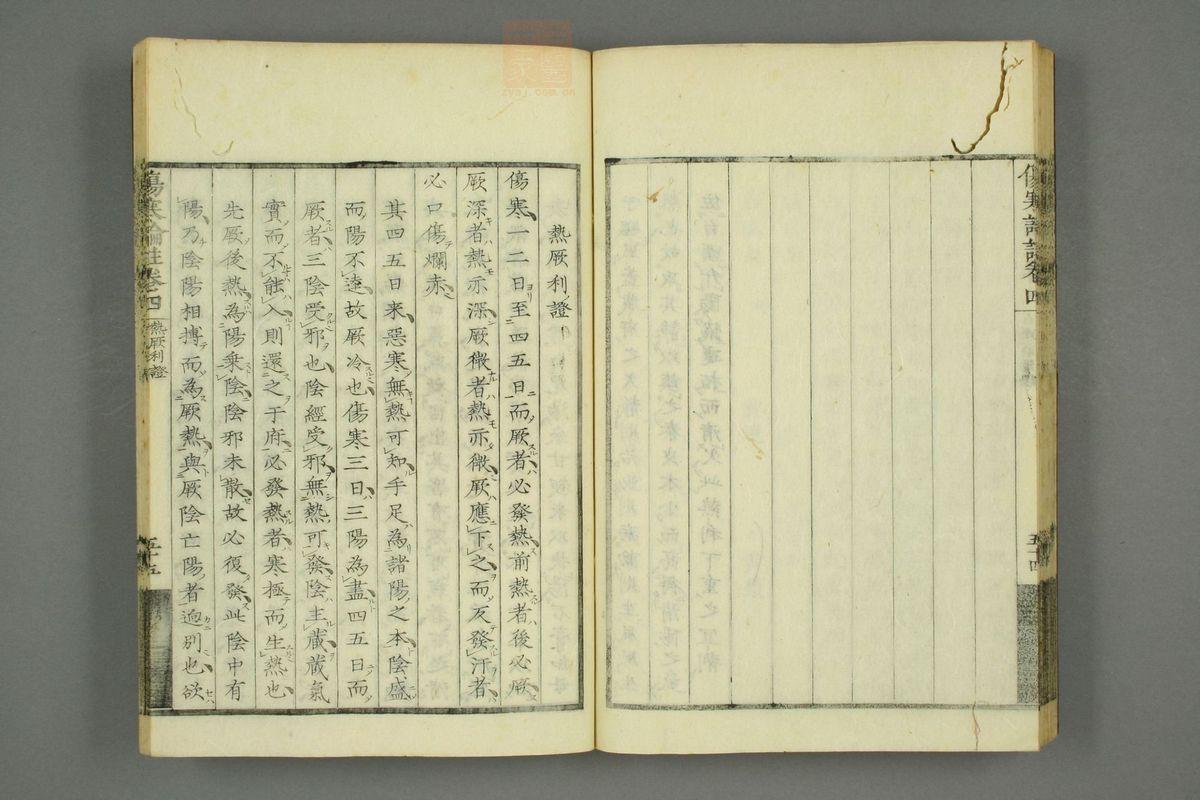 傷寒論註卷四
五十四
熱厥利證
傷寒一二日至四五日而厥者必發熱前熱者後必厥
厥深者熱亦深厥微者熱亦微厥應下之而反發汗者
必口傷爛赤
其四五日來惡寒無熱可知手足為諸陽之本陰盛
而陽不達故厥冷也傷寒三日三陽為盡四五日而
厥者三陰受邪也陰經受邪無熱可發陰主藏藏氣
實而不能入則還之于府必發熱者寒極而生熱也
先厥後熱為陽乘陰陰邪未散故必復發此陰中有
陽乃陰陽相搏而為厥熱與厥陰亡陽者逈別也欲
傷寒論註卷四
熱厥利證
五十五
zysj.com.cn